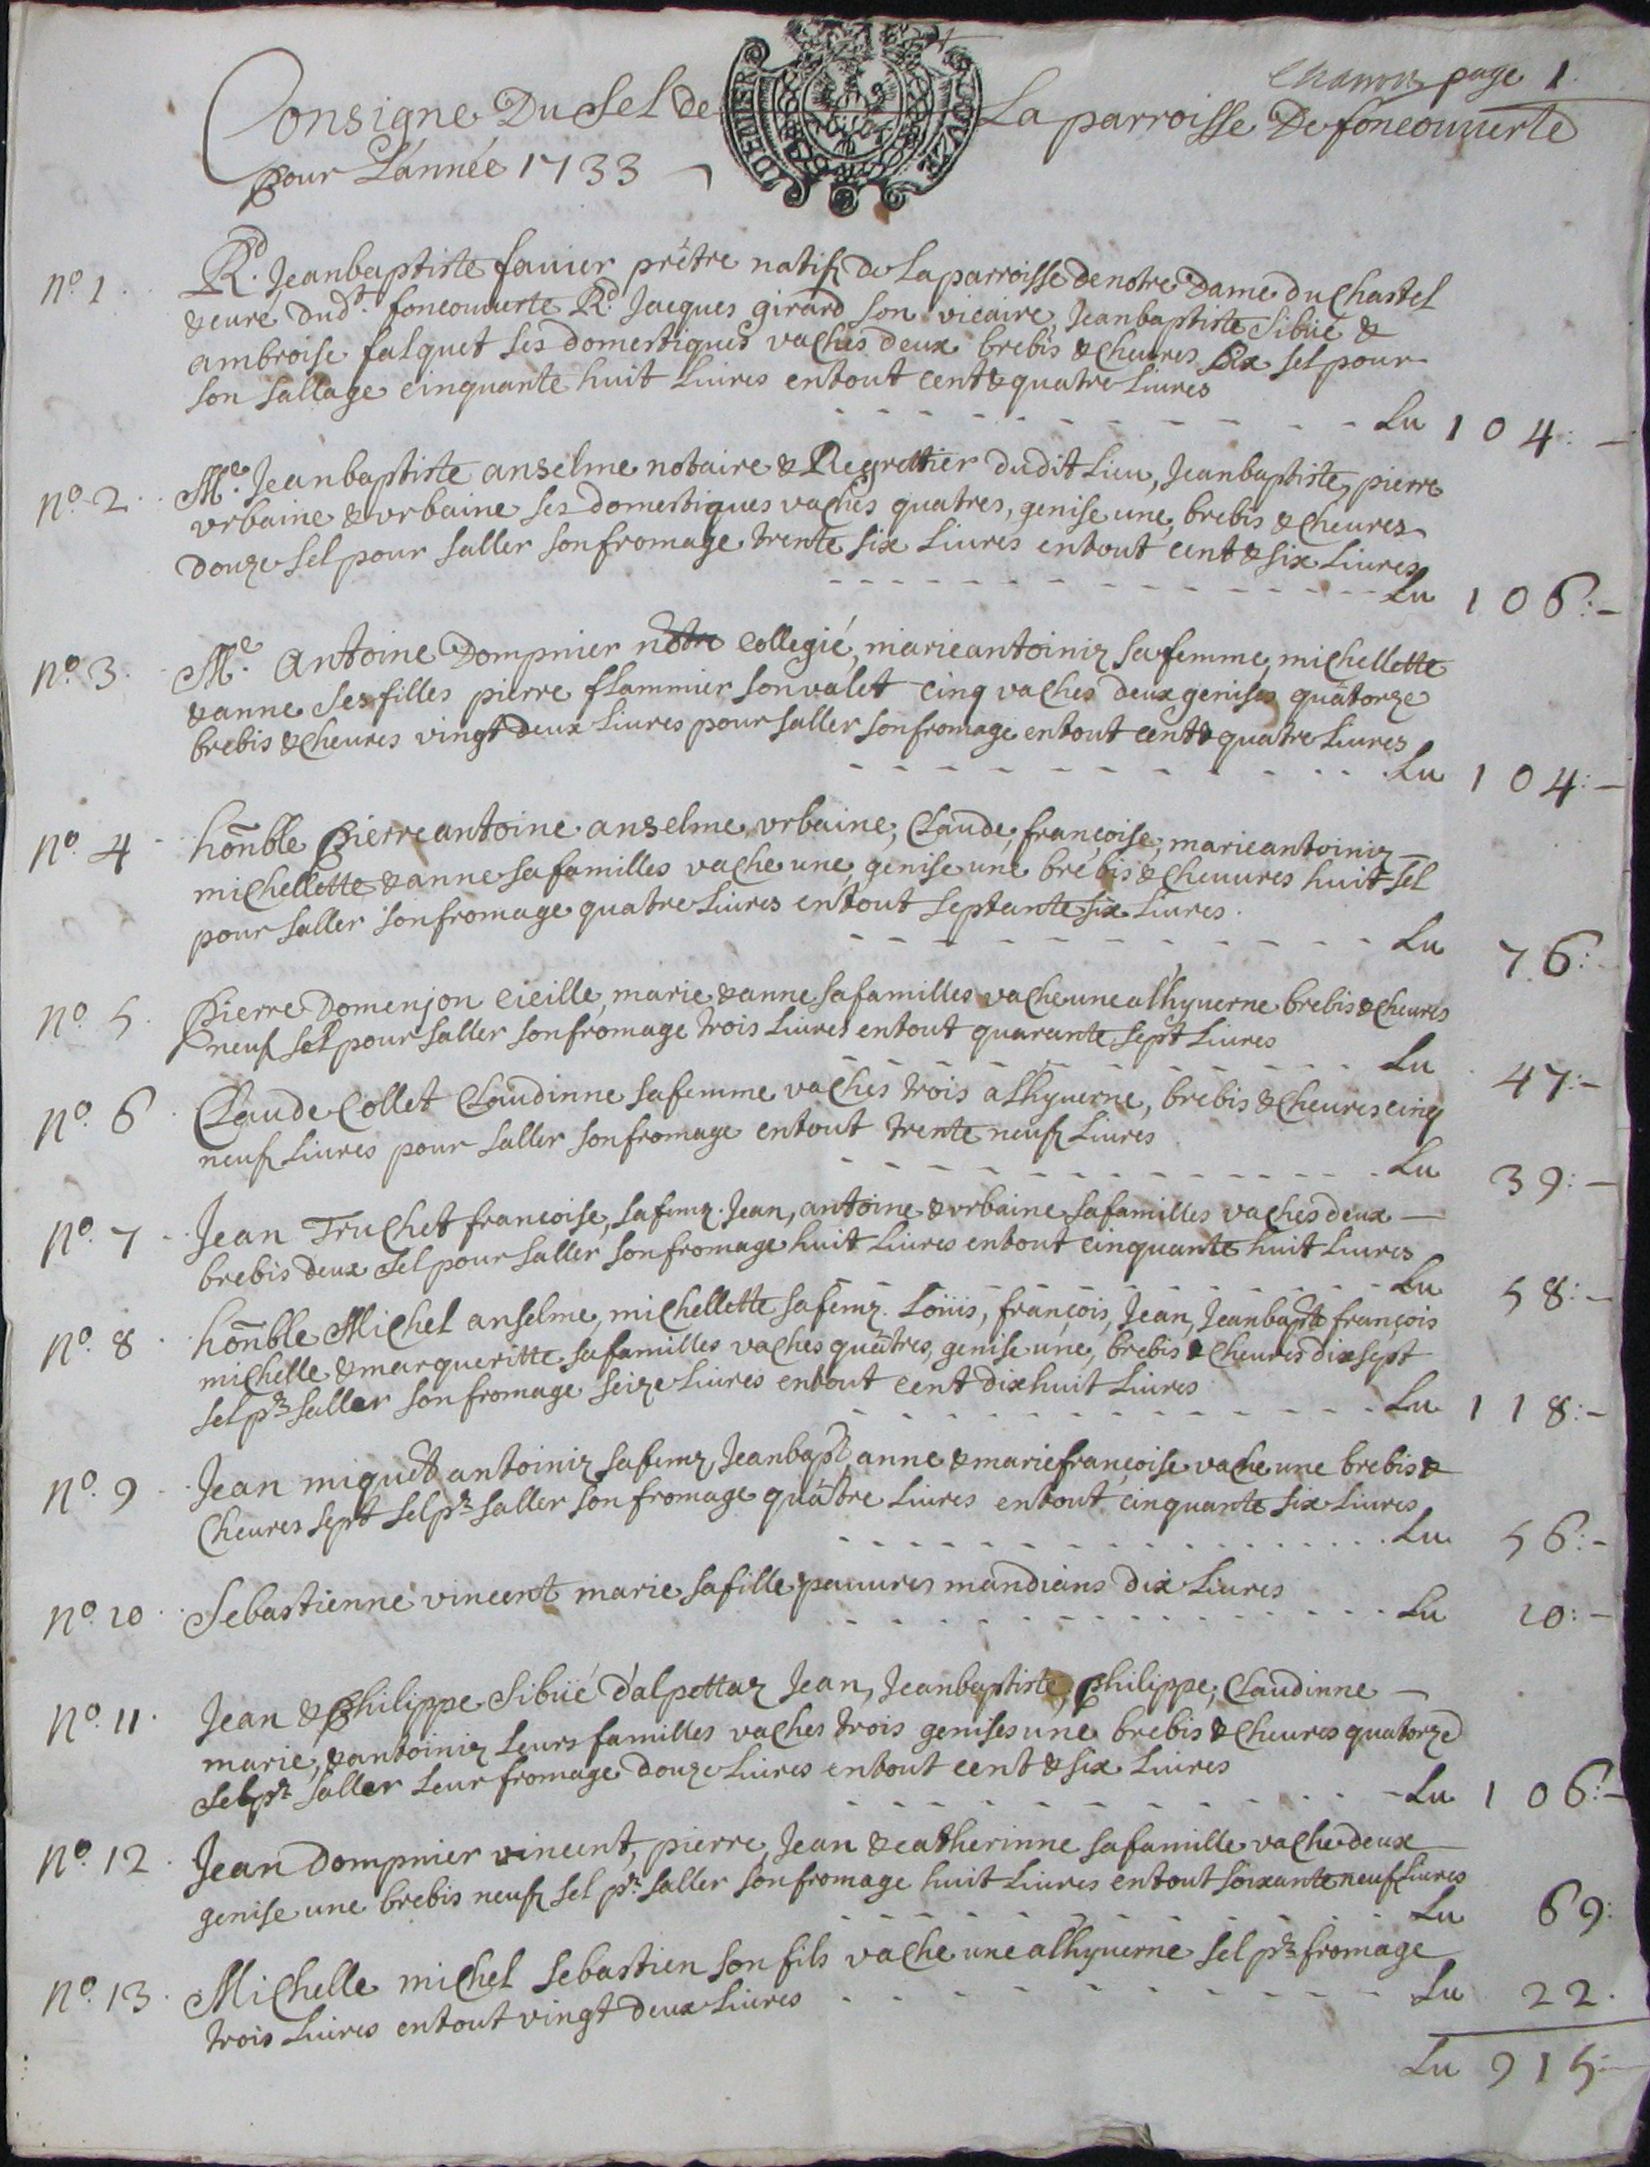 page 1
Consigne Du Sel de La parroisse De foncouuerte
pour L'année 1733
No. 1. Rd. Jeanbaptiste fauier prétre natif de La parroisse de notre Dame du Chastel
& curé dudt. foncouuerte Rd. Jacques girard son vicaire, Jeanbaptiste Sibüe &
ambroise falquet ses domestiques vaches deux brebis & cheures six sel pour
son sallage cinquante huit Liures entout cent & quatre Liures
Lu 104:-
No. 2. Me. Jeanbaptiste anselme notaire & Regrattier dudit Lieu, Jeanbaptiste, pierre
vrbaine & vrbaine ses domestiques vaches quatres, genise une, brebis & cheures
douze sel pour saller son fromage trente six Liures entout cent & six Liures
Lu 106:-
No. 3. Me. Antoine Dompnier notre collegié, marieantoiniz sa femme, michellette
& anne ses filles pierre flammier son valet cinq vaches deux genises quatorze
brebis & cheures vingt deux Liures pour saller son fromage entout cent & quatre Liures
Lu 104:-
No. 4 honble Pierreantoine anselme, vrbaine, Claude, françoise, marieantoiniz
michellette & anne sa familles vache une, genise une brebis & cheuures huit sel
pour saller son fromage quatre Liures entout septante six Liures.
Lu 76:-
No. 5. Pierre Domenjon cieille, marie & anne sa familles vache une alhyuerne brebis & cheures
neuf sel pour saller son fromage trois Liures entout quarante sept Liures
Lu 47:-
No. 6 Claude Collet Claudinne sa femme vaches trois alhyuerne, brebis & cheures cinq
neuf Liures pour saller son fromage entout trente neuf Liures
Lu 39:-
No. 7 Jean Truchet francoise, sa femz. Jean, antoine & vrbaine sa familles vaches deux
brebis deux sel pour saller son fromage huit Liures entout cinquante huit Liures
Lu 58:-
No. 8 honble Michel anselme, michellette sa femz. Loüis, françois, Jean, Jeanbapte françois
michelle & margueritte sa familles vaches quatres, genise une, brebis & cheures dix sept
sel pr saller son fromage seize Liures entout cent dixhuit Liures
Lu 118:-
No. 9 Jean miquet antoiniz sa femz, Jeanbapt anne & mariefrançoise vache une brebis &
cheures sept sel pr saller son fromage quatre Liures entout cinquante six Liures
Lu 56:-
No. 10 Sebastienne vincent marie sa fille pauures mandians dix Liures
Lu 10:-
No. 11. Jean & Philippe Sibüé d'alpettaz Jean, Jeanbaptiste, Philippe, Claudinne
marie, & antoiniz Leurs familles vaches trois genises une brebis & cheures quatorze
sel pr saller Leur fromage douze Liures entout cent & six Liures
Lu 106:-
No. 12 Jean Dompnier vincent, pierre, Jean & catherinne sa famille vache deux
genise une brebis neuf sel pr. saller son fromage huit Liures entout soixante neuf Liures
Lu 69:
No. 13. Michelle michel sebastien son fils vache une alhyuerne sel pr fromage
trois Liures entout vingt deux Liures Lu 22.
Lu 915:-